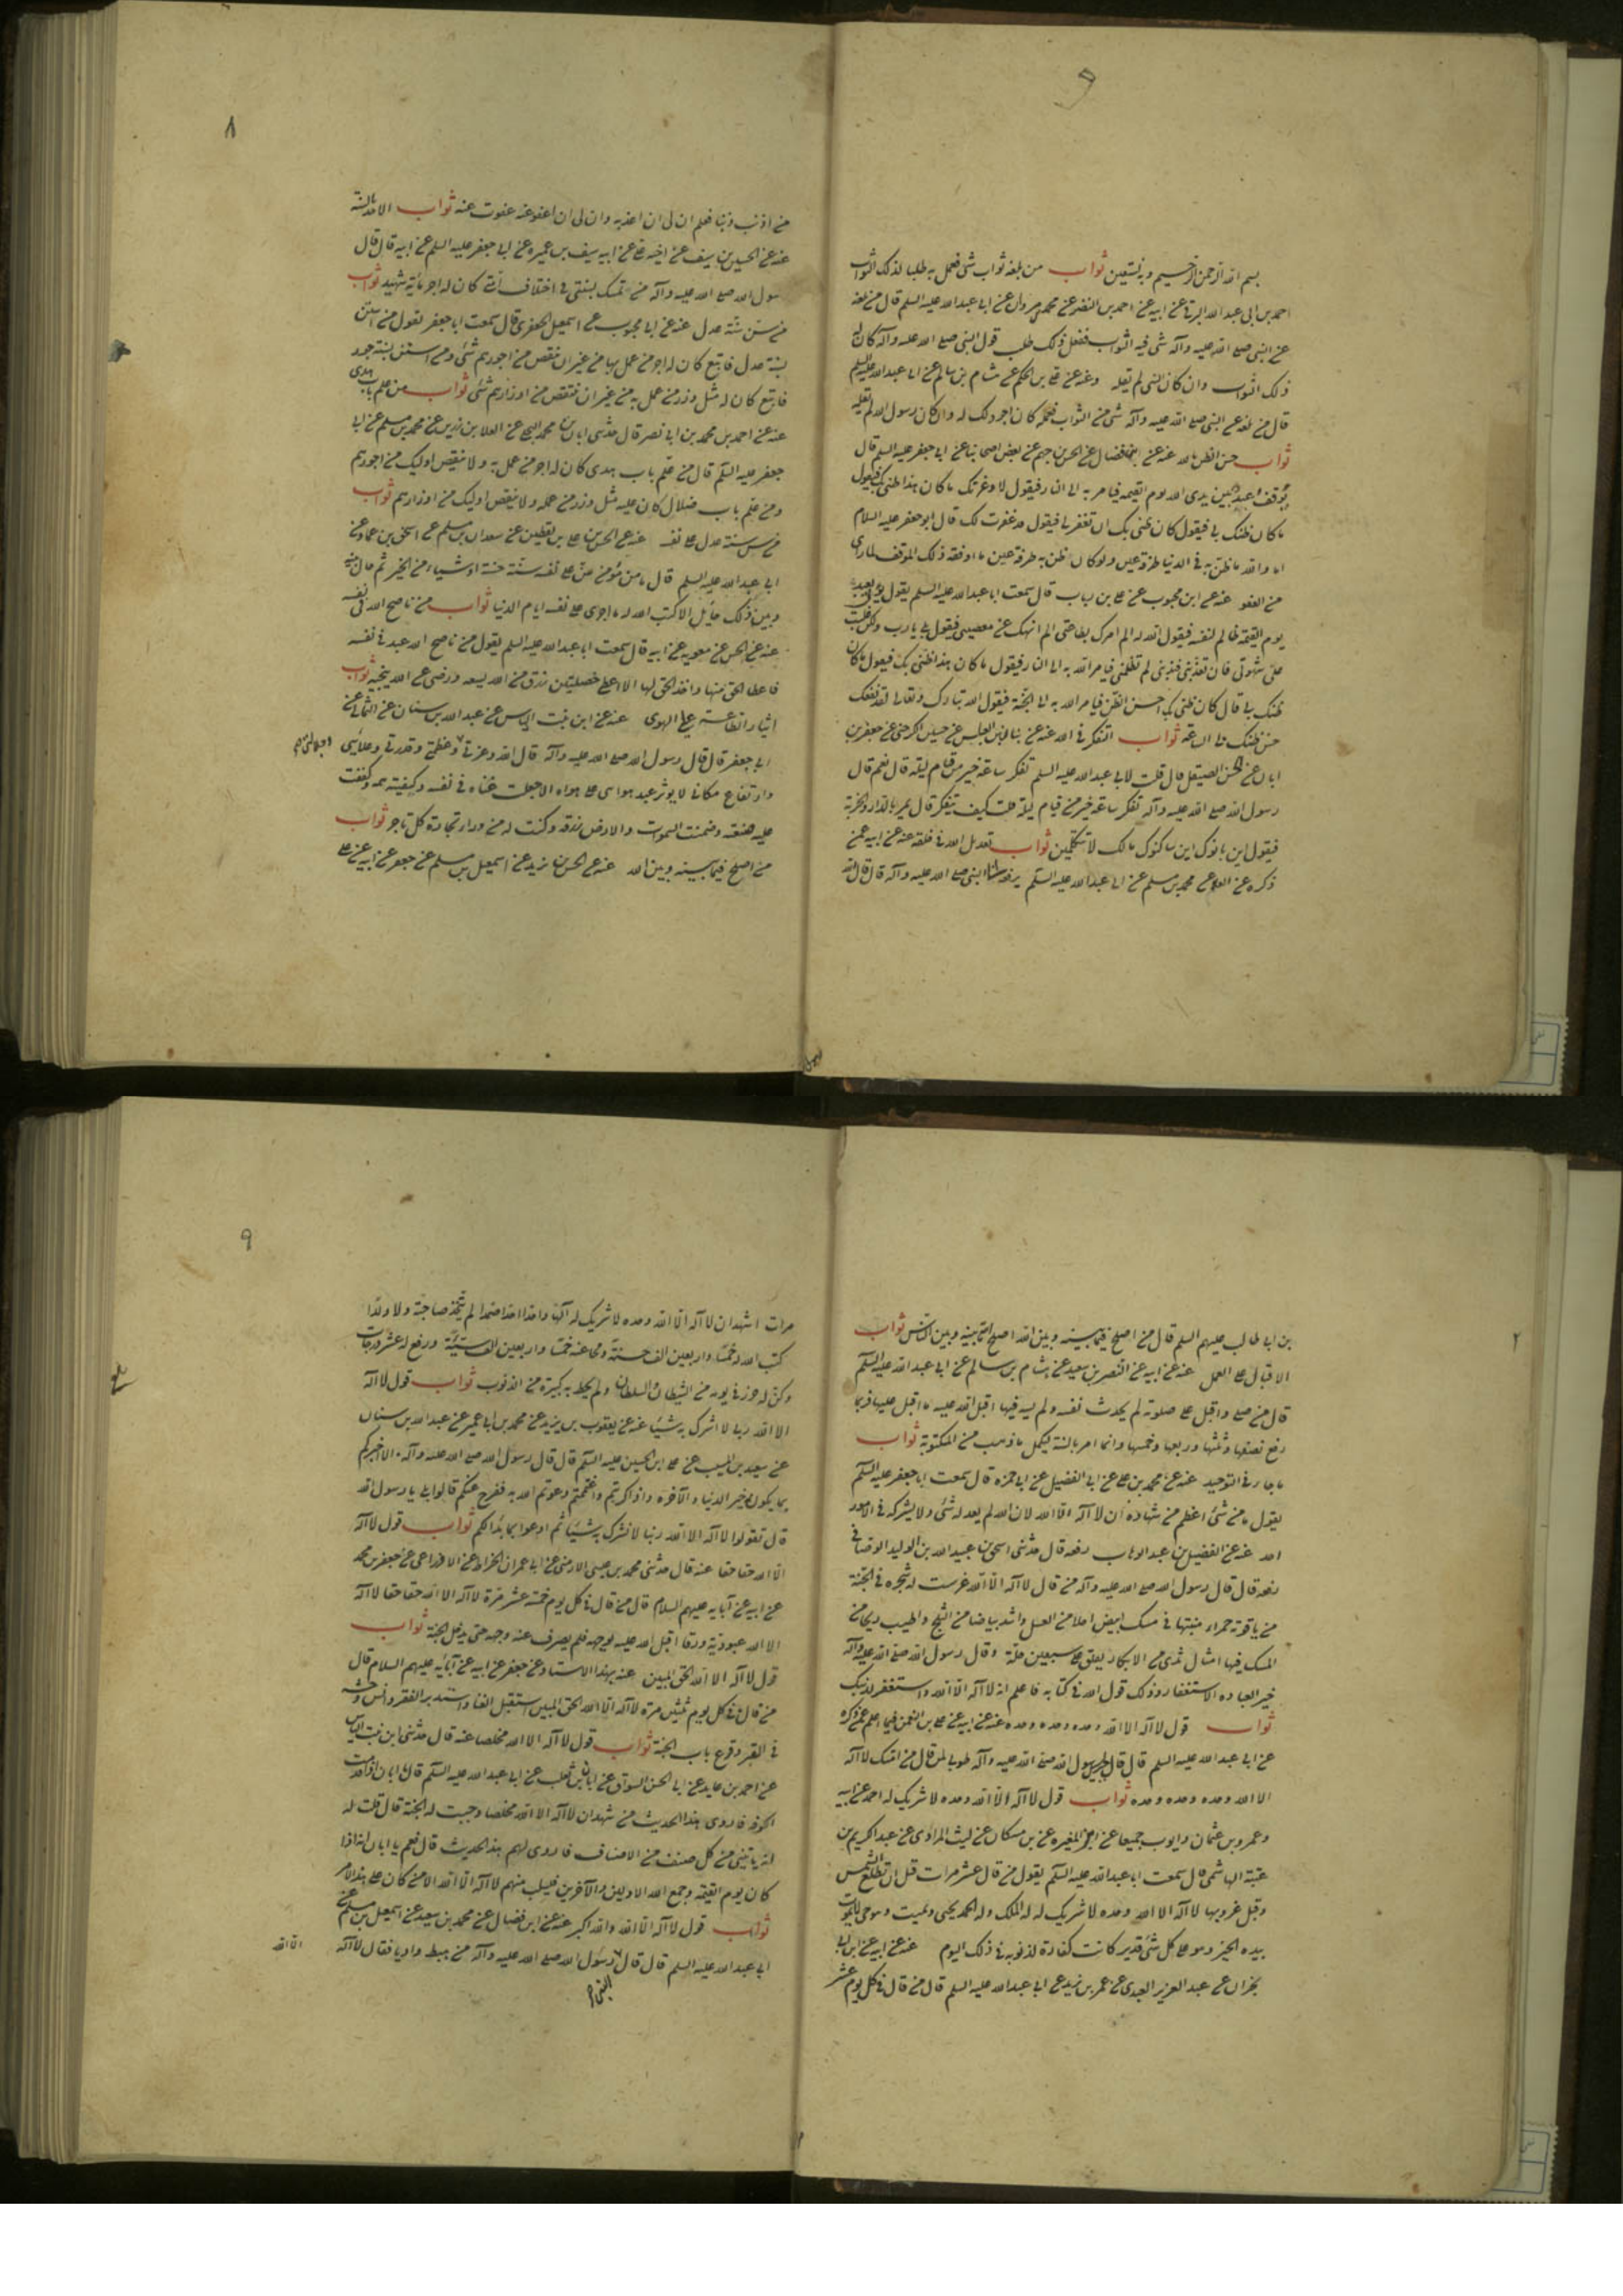 بسم الله الرحمن الرحيم وبه نستعين ثواب من بلغه ثواب شئ فعمل به طلبا لذلك الثواب
احمد بن ابى عبد الله البرقى عن ابيه عن احمد بن النضر عن محمد بن مروان عن ابى عبد الله عليه السلم قال من بلغه
عن النبى صلى الله عليه وآله شئ فيه الثواب ففعل ذلك طلب قول النبى صلى الله عليه وآله كان له
ذلك الثواب وان كان النبى لم يقله وعنه عن على بن الحكم عن هشام بن سالم عن ابى عبد الله عليه السلم
قال من بلغه عن النبى صلى الله عليه وآله شئ من الثواب فعمله كان اجر ذلك له وان كان رسول الله لم يقله
ثواب حسن الظن بالله عنه عن ابن فضال عن الحسن بن جهم عن بعض اصحابنا عن ابى جعفر عليه السلم قال
يوقف عبد بين يدى الله يوم القيمة فيامر به الى النار فيقول لا وعزتك ما كان هذا ظنى بك فيقول
ما كان ظنك بى فيقول كان ظنى بك ان تغفر لى فيقول قد غفرت لك قال ابو جعفر عليه السلام
اما والله ما ظن به فى الدنيا طرفة عين ولو كان ظن به طرفة عين ما اوقفه ذلك الموقف لما راى
من العفو عنه عن ابن محبوب عن على بن رياب قال سمعت ابا عبد الله عليه السلم يقول يؤتى بعبد
يوم القيمة ظالم لنفسه فيقول الله له الم امرك بطاعتى الم انهك عن معصيتى فيقول بلى يا رب ولكن غلبت
على شهوتى فان تعذبنى فبذنبى لم تظلمنى فيامر الله به الى النار فيقول ما كان هذا ظنى بك فيقول ما كان
ظنك بى قال كان ظنى بك احسن الظن فيامر الله به الى الجنة فيقول الله تبارك وتعالى لقد نفعك
حسن ظنك بى الساعة ثواب التفكر فى الله عنه عن بنان بن العباس عن حسين الكرخى عن جعفر بن
ابان عن الحسن الصيقل قال قلت لابى عبد الله عليه السلم تفكر ساعة خير من قيام ليلة قال نعم قال
رسول الله صلى الله عليه وآله تفكر ساعة خير من قيام ليلة قلت كيف يتفكر قال يمر بالدار والخربة
فيقول اين بانوك اين ساكنوك مالك لا تتكلمين ثواب تعديل الله فى خلقه عنه عن ابيه عمن
ذكره عن العلا عن محمد بن مسلم عن ابى عبد الله عليه السلم يرفعه الى النبى صلى الله عليه وآله قال قال الله
٨
من اذنب ذنبا فعلم ان لى ان اعذبه وان لى ان اعفو عنه عفوت عنه ثواب الاخذ بالسنة
عنه عن الحسين بن سيف عن اخيه على عن ابيه سيف بن عميره عن ابى جعفر عليه السلم عن ابيه قال قال
رسول الله صلى الله عليه وآله من تمسك بسنتى فى اختلاف امتى كان له اجر ماية شهيد ثواب
من سن سنة عدل عنه عن ابن محبوب عن اسمعيل الجعفرى قال سمعت ابا جعفر يقول من استن
بسنة عدل فاتبع كان له اجر من عمل بها من غير ان ينقص من اجورهم شئ ومن استن بسنة جور
فاتبع كان له مثل وزر من عمل به من غير ان ينتقص من اوزارهم شئ ثواب من علم باب هدى
عنه عن احمد بن محمد بن ابى نصر قال حدثنى ابان بن محمد البجلى عن العلا بن رزين عن محمد بن مسلم عن ابى
جعفر عليه السلم قال من علم باب هدى كان له اجر من عمل به ولا ينقص اوليك من اجورهم
ومن علم باب ضلال كان عليه مثل وزر من عمله ولا ينقص اوليك من اوزارهم ثواب
من سن سنة عدل على نفسه عنه عن الحسن بن على بن يقطين عن سعدان بن مسلم عن اسحق بن عمار عن
ابى عبد الله عليه السلم قال ما من مؤمن سن على نفسه سنة حسنة او شياء من الخير ثم حال بينه
وبين ذلك حايل الا كتب الله له ما اجرى على نفسه ايام الدنيا ثواب من ناصح الله فى نفسه
عنه عن الحسن عن معويه عن ابيه قال سمعت ابا عبد الله عليه السلم يقول من ناصح الله عبد فى نفسه
فاعطى الحق منها واخذ الحق لها الا اعطى خصلتين رزق من الله يسعه ورضى عن الله ينجيه ثواب
ايثار الطاعة على الهوى عنه عن ابن بنت الياس عن عبد الله بن سنان عن الثمالى عن
ابى جعفر قال قال رسول الله صلى الله عليه وآله قال الله وعزتى وعظمتى وقدرتى وعلائى
وارتفاع مكانى لا يوثر عبد هواى على هواه الا جعلت غناه فى نفسه وكفيته همه وكففت
عليه ضيعته وضمنت السموات والارض رزقه وكنت له من وراء تجارة كل تاجر ثواب
من اصلح فيما بينه وبين الله عنه عن الحسن بن يزيد عن اسمعيل بن مسلم عن جعفر عن ابيه عن على
٢
بن ابى طالب عليهم السلم قال من اصلح فيما بينه وبين الله اصلح الله بينه وبين الناس ثواب
الاقبال على العمل عنه عن ابيه عن النضر بن سعيد عن هشام بن سالم عن ابى عبد الله عليه السلم
قال من صلى واقبل على صلوته لم يحدث نفسه ولم يسه فيها اقبل الله عليه ما اقبل عليها فربما
رفع نصفها وثلثها وربعها وخمسها وانما امر بالسنة ليكمل ما ذهب من المكتوبة ثواب
ما جاء فى التوحيد عنه عن محمد بن على عن ابى الفضيل عن ابى حمزه قال سمعت ابا جعفر عليه السلم
يقول ما من شئ اعظم من شهادة ان لا اله الا الله لان الله لم يعدله شئ ولا يشركه فى الامر
احد عنه عن الفضيل بن عبد الوهاب رفعه قال حدثنى اسحق بن عبيد الله بن الوليد الوصافى
رفعه قال قال رسول الله صلى الله عليه وآله من قال لا اله الا الله غرست له شجره فى الجنة
من ياقوتة حمراء منبتها فى مسك ابيض احلا من العسل واشد بياضا من الثلج واطيب ريحا من
المسك فيها امثال ثدى الابكار يفلق عن سبعين حلة وقال رسول الله صلى الله عليه وآله
خير العباده الاستغفار وذلك قول الله فى كتابه فاعلم انه لا اله الا الله واستغفر لذنبك
ثواب قول لا اله الا الله وحده وحده وحده عنه عن ابيه عن على بن النعمن فيما اعلم عمن ذكره
عن ابى عبد الله عليه السلم قال قال جبرئيل لرسول الله صلى الله عليه وآله طوبى لمن قال من امتك لا اله
الا الله وحده وحده وحده ثواب قول لا اله الا الله وحده لا شريك له احمد عن ابيه
وعمرو بن عثمان وايوب جميعا عن ابن المغيره عن بن مسكان عن ليث المرادى عن عبد الكريم بن
عتبة الهاشمى قال سمعت ابا عبد الله عليه السلم يقول من قال عشر مرات قبل ان تطلع الشمس
وقبل غروبها لا اله الا الله وحده لا شريك له له الملك وله الحمد يحيى ويميت وهو حى لا يموت
بيده الخير وهو على كل شئ قدير كانت كفارة لذنوبه فى ذلك اليوم عنه عن ابيه عن ابن ابى
نجران عن عبد العزيز العبدى عن عمر بن يزيد عن ابى عبد الله عليه السلم قال من قال فى كل يوم عشر
٩
مرات اشهد ان لا اله الا الله وحده لا شريك له الها واحدا احدا صمدا لم يتخذ صاحبة ولا ولدا
كتب الله له خمسا واربعين الف حسنة ومحا عنه خمسا واربعين الف سيئة ورفع له عشر درجات
وكن له حرزا فى يومه من الشيطان والسلطان ولم يحط به كبيرة من الذنوب ثواب قول لا اله
الا الله ربا لا اشرك به شيئا عنه عن يعقوب بن يزيد عن محمد بن ابى عمير عن عبد الله بن سنان
عن سعيد بن المسيب عن على ابن الحسين عليه السلم قال قال رسول الله صلى الله عليه وآله الا اخبركم
بما يكون به خير الدنيا والآخره واذا كربتم واغتممتم دعوتم الله به ففرج عنكم قالوا بلى يا رسول الله
قال تقولوا لا اله الا الله ربنا لا نشرك به شيئا ثم ادعوا بما بدا لكم ثواب قول لا اله
الا الله حقا حقا عنه قال حدثنى محمد بن عيسى الارمنى عن ابى عمران الخراط عن الاوزاعى عن جعفر بن محمد
عن ابيه عن آبايه عليهم السلام قال من قال فى كل يوم خمسة عشر مرة لا اله الا الله حقا حقا لا اله
الا الله عبودية ورقا اقبل الله عليه بوجهه فلم يصرف عنه وجهه حتى يدخل الجنة ثواب
قول لا اله الا الله الحق المبين عنه بهذا الاسناد عن جعفر عن ابيه عن آبائه عليهم السلام قال
من قال فى كل يوم ثلثين مرة لا اله الا الله الحق المبين استقبل الغنا واستدبر الفقر وانس وحشته
فى القبر وقرع باب الجنة ثواب قول لا اله الا الله مخلصا عنه قال حدثنى ابن بنت الياس
عن احمد بن عايذ عن ابى الحسن السواق عن ابان بن تغلب عن ابى عبد الله عليه السلم قال يا ابان اذا قدمت
الكوفه فاروى هذا الحديث من شهد ان لا اله الا الله مخلصا وجبت له الجنة قال قلت له
انه ياتينى من كل صنف من الاصناف فاروى لهم هذا الحديث قال نعم يا ابان انه اذا
كان يوم القيمة وجمع الله الاولين والآخرين فيسلب منهم لا اله الا الله الا من كان على هذا الامر
ثواب قول لا اله الا الله والله اكبر عنه عن ابن فضال عن محمد بن سعيد عن اسمعيل بن مسلم عن
ابى عبد الله عليه السلم قال قال رسول الله صلى الله عليه وآله من هبط واديا فقال لا اله الا الله